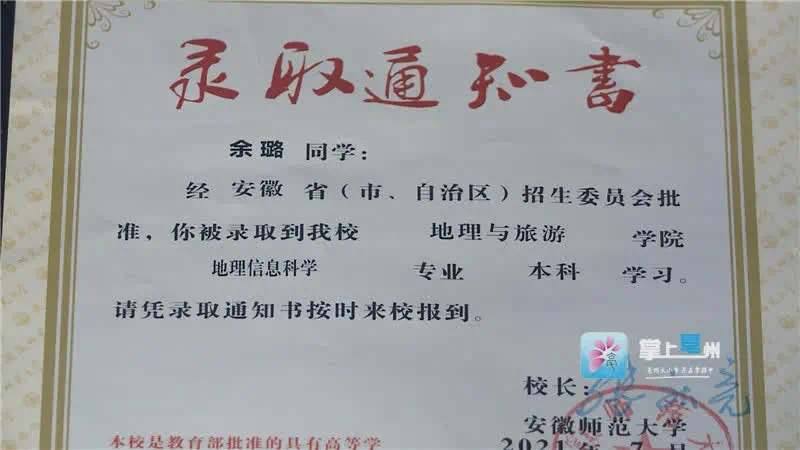 录取通知书
余璐 同学：
经 安徽 省（市、自治区）招生委员会批
准，你被录取到我校 地理与旅游 学院
地理信息科学 专业 本科 学习。
请凭录取通知书按时来校报到。
掌上亳州
校长：
安徽师范大学
2021 年 7 月
本校是教育部批准的具有高等学